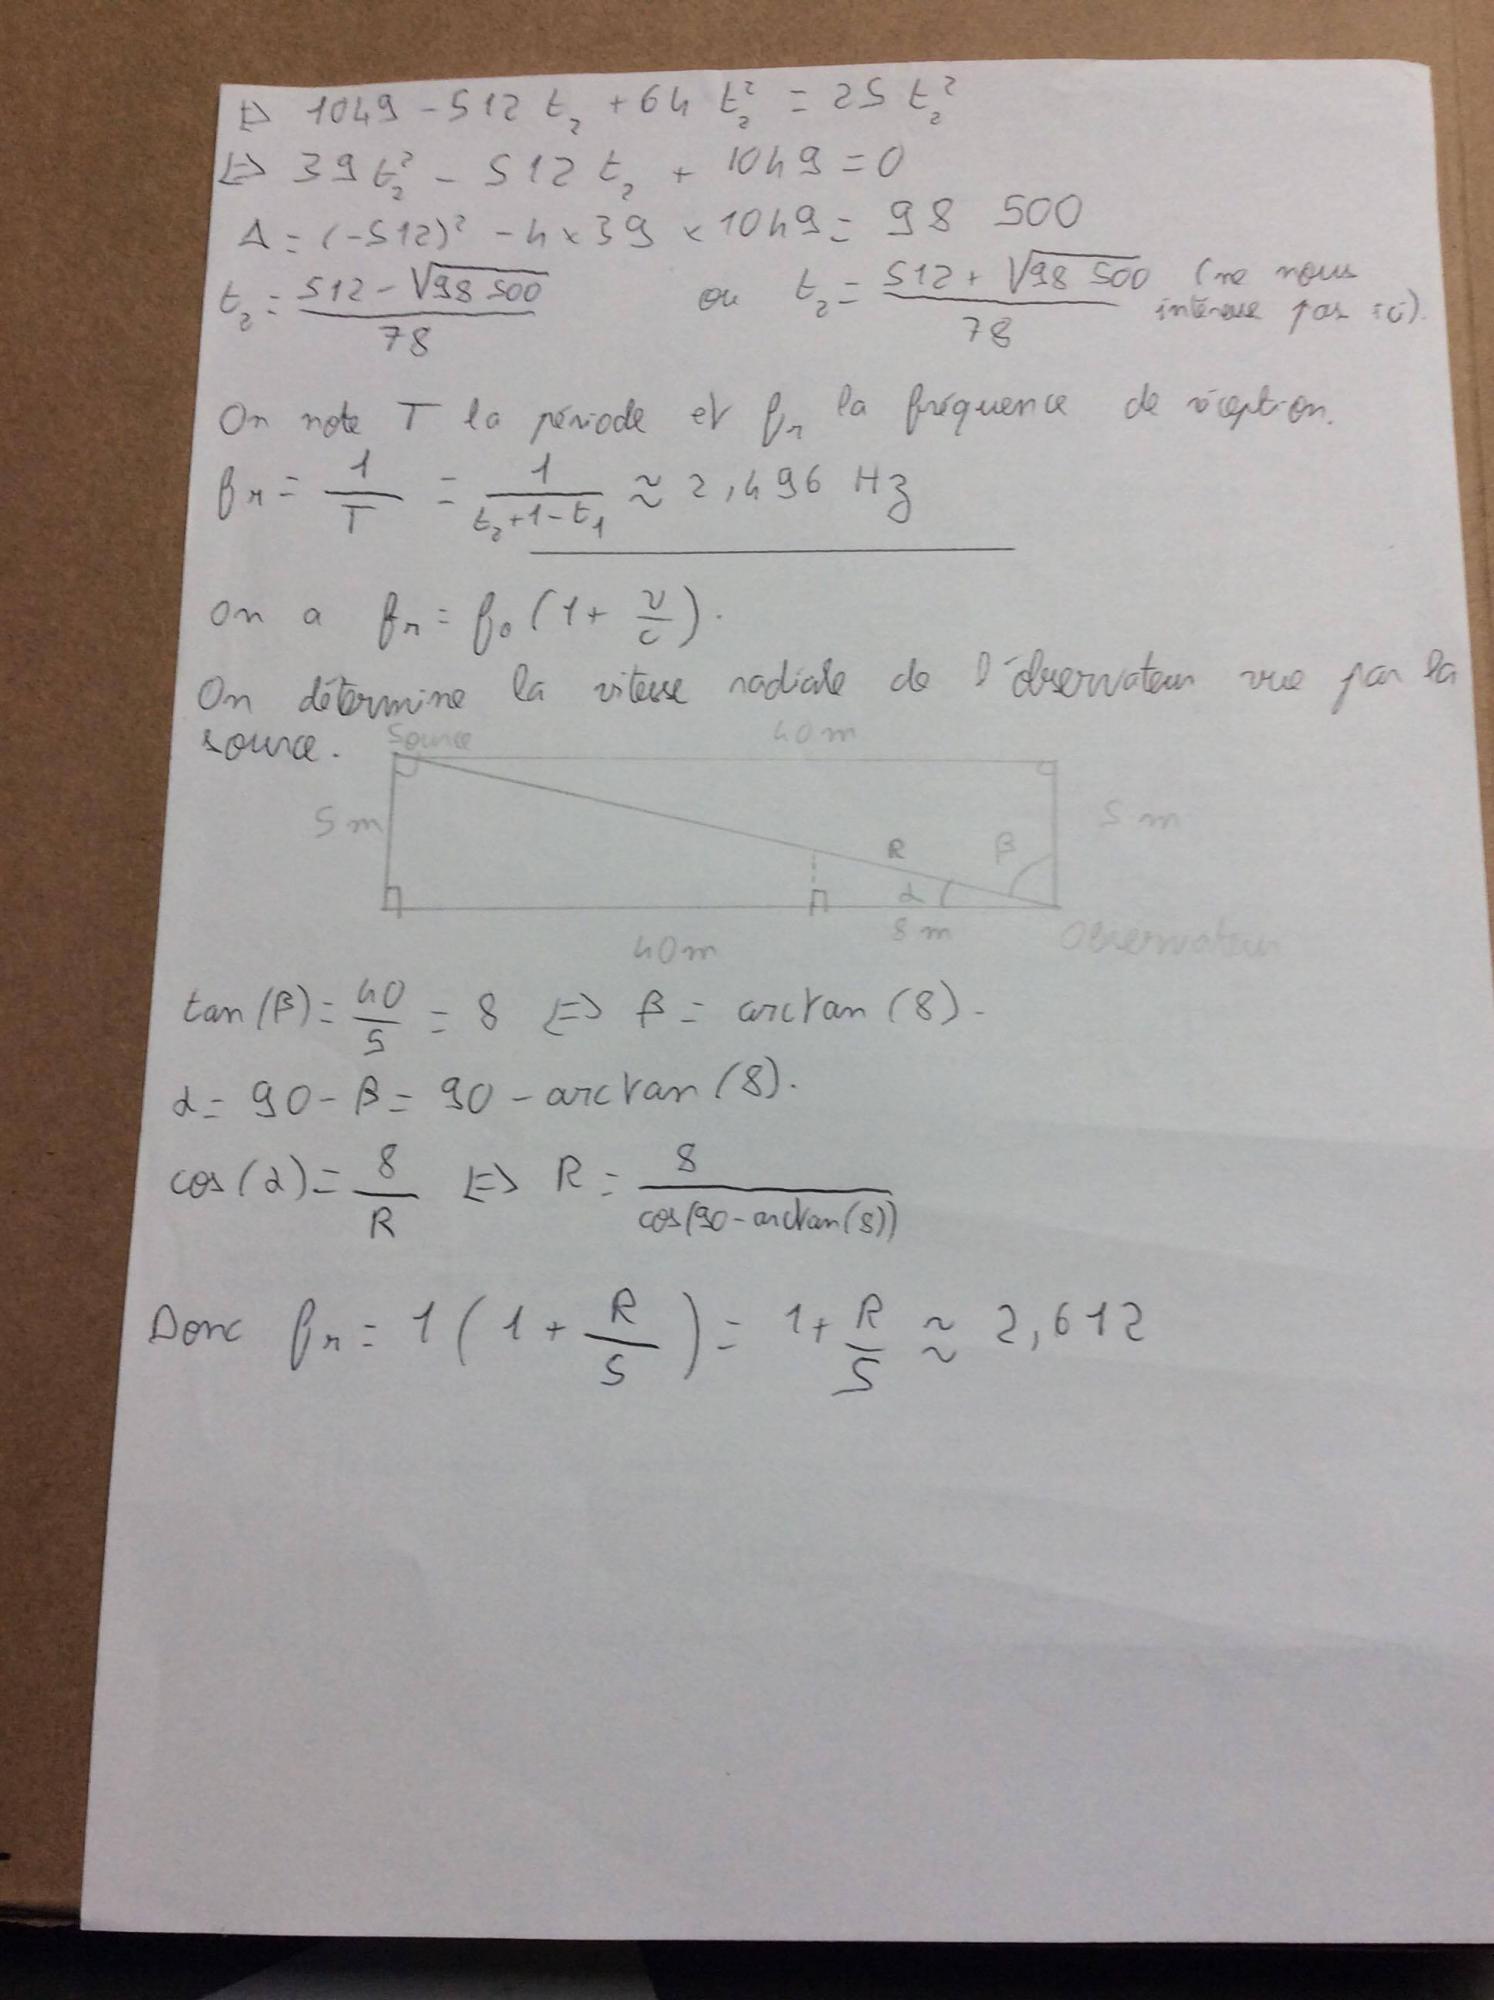 ⇔ 1049 - 512 t₂ + 64 t₂² = 25 t₂²
⇔ 39 t₂² - 512 t₂ + 1049 = 0
Δ = (-512)² - 4 × 39 × 1049 = 98 500
t₂ = (512 - √98 500) / 78 ou t₂ = (512 + √98 500) / 78 (ne nous intéresse pas ici).
On note T la période et fr la fréquence de réception.
fr = 1/T = 1/(t₂+1-t₁) ≈ 2,496 Hz
On a fr = f₀ (1 + v/c).
On détermine la vitesse radiale de l'observateur vue par la
source.
Source 40 m
5 m 5 m
R β
α
8 m
40 m Observateur
tan(β) = 40/5 = 8 ⇔ β = arctan(8).
α = 90 - β = 90 - arctan(8).
cos(α) = 8/R ⇔ R = 8/cos(90 - arctan(8))
Donc fr = 1(1 + R/5) = 1 + R/5 ≈ 2,612